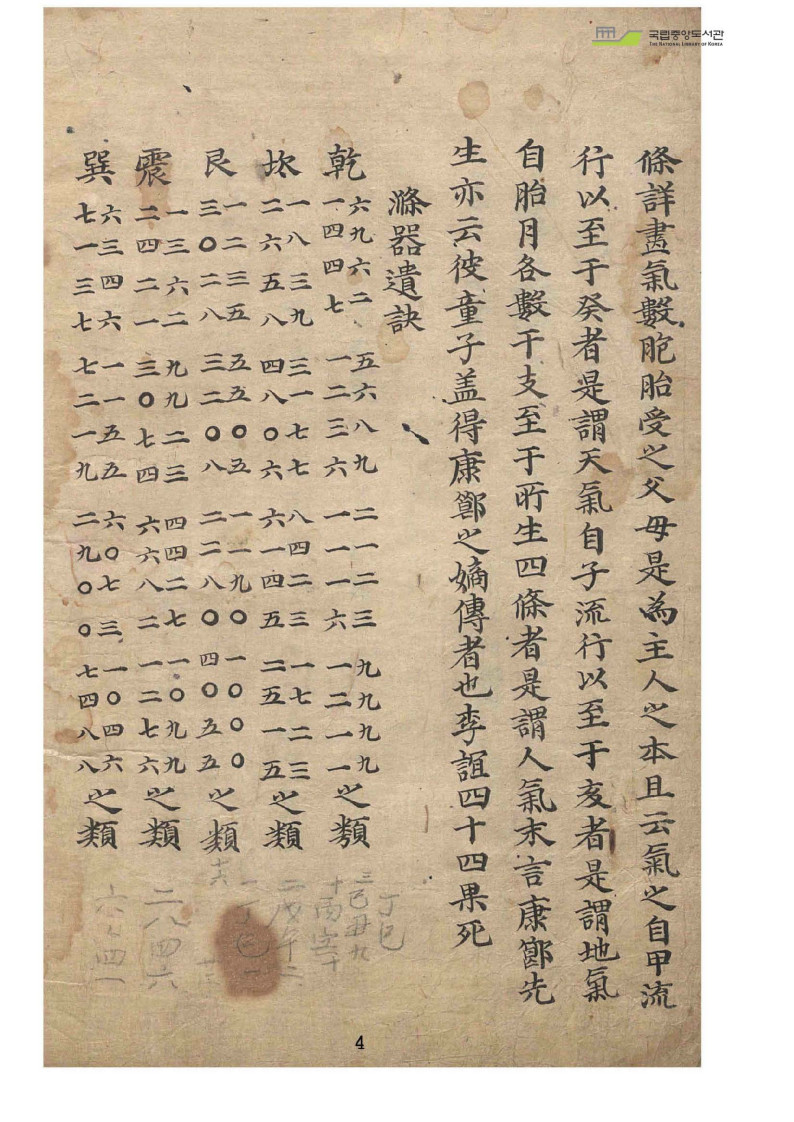 국립중앙도서관
THE NATIONAL LIBRARY OF KOREA
條詳盡氣數胞胎受之父母是為主人之本且云氣之自甲流
行以至于癸者是謂天氣自子流行以至于亥者是謂地氣
自胎月各數干支至于所生四條者是謂人氣末言康節先
生亦云彼童子盖得康節之嫡傳者也李誼四十四果死
滌器遺訣
乾 六九六二 五六八九 二一二三 九九九九
一四四七 一二三六 一一一六 一二一一 之類
坎 一八三九 三一七七 八四二三 一七二三
二六五八 四八〇六 六一四五 二五一五 之類
艮 一二三五 五五〇五 一一九〇 一〇〇〇
三〇二八 三二〇八 二二八〇 四〇五五 之類
震 一三六二 九九二三 四四二七 一〇九九
二四二一 三〇七四 六六八二 一二七六 之類
巽 六三四六 一一五五 六〇七三 一〇四六
七一三七 七二一九 二九〇〇 七四八八 之類
丁巳
三己丑九
二八四六
4